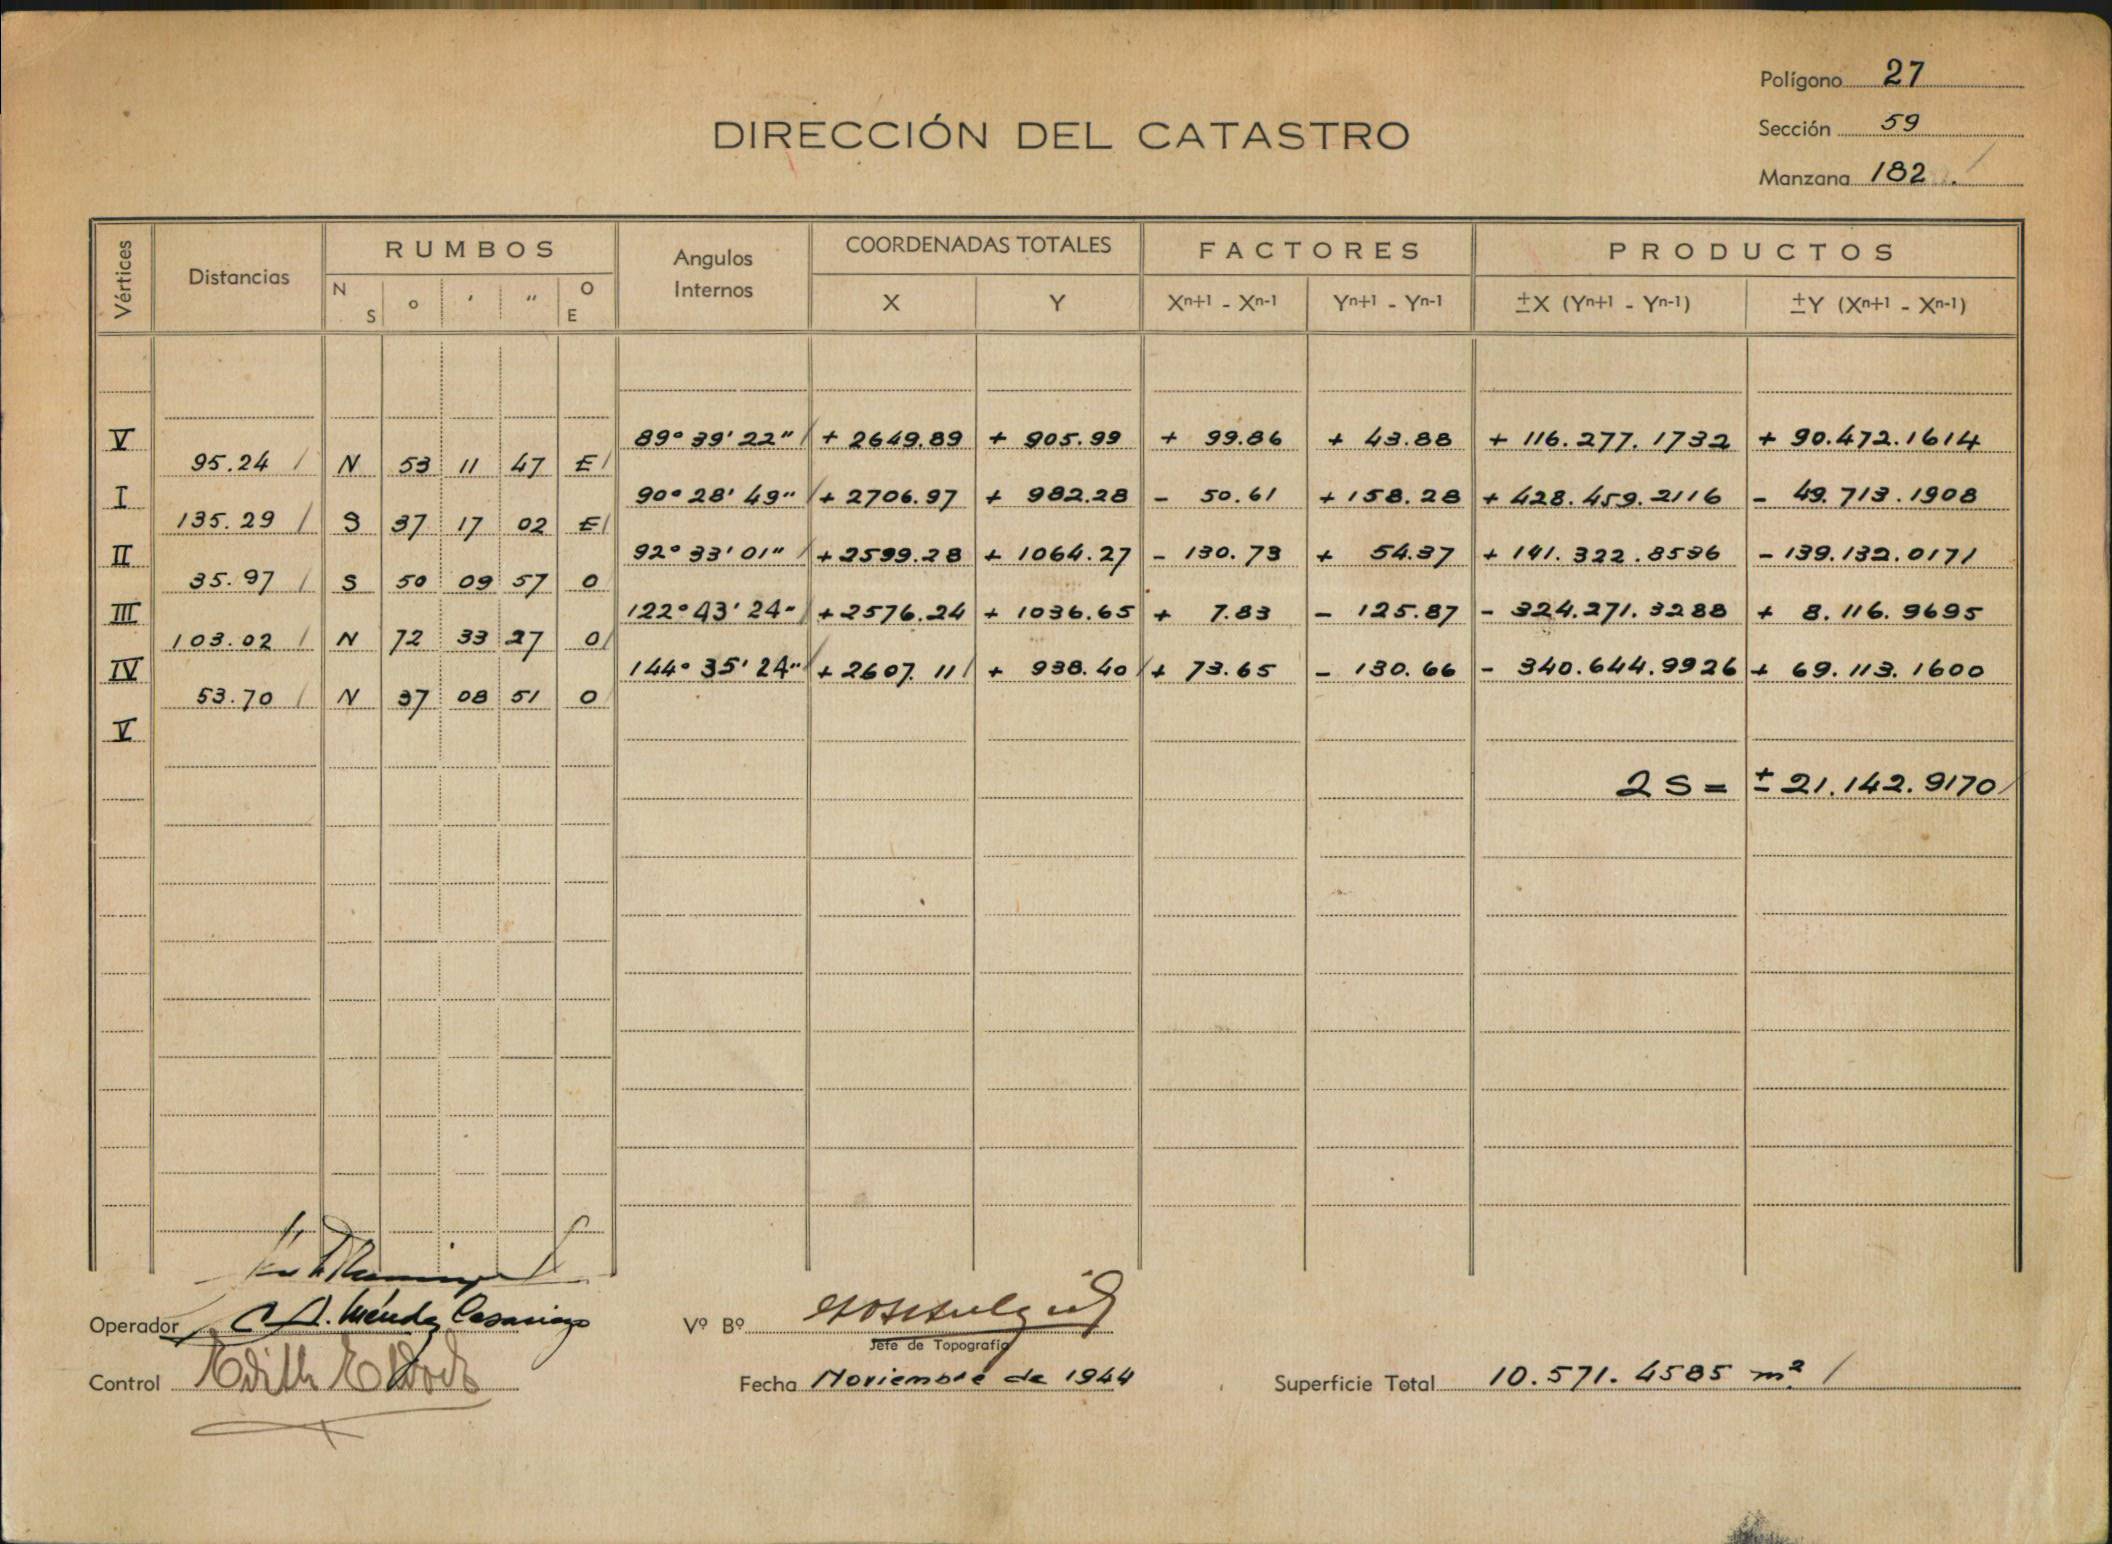 Polígono 27
DIRECCIÓN DEL CATASTRO
Sección 59
Manzana 182.
Vértices Distancias RUMBOS Angulos Internos COORDENADAS TOTALES FACTORES PRODUCTOS
N S o ʹ ʺ O E X Y Xn+1 - Xn-1 Yn+1 - Yn-1 ±X (Yn+1 - Yn-1) ±Y (Xn+1 - Xn-1)
V 89° 39' 22" + 2649.89 + 905.99 + 99.86 + 43.88 + 116.277.1732 + 90.472.1614
95.24 N 53 11 47 E
I 90° 28' 49" + 2706.97 + 982.28 - 50.61 + 158.28 + 428.459.2116 - 49.713.1908
135.29 S 37 17 02 E
II 92° 33' 01" + 2599.28 + 1064.27 - 130.73 + 54.37 + 141.322.8536 - 139.132.0171
35.97 S 50 09 57 O
III 122° 43' 24" + 2576.24 + 1036.65 + 7.83 - 125.87 - 324.271.3288 + 8.116.9695
103.02 N 72 33 27 O
IV 144° 35' 24" + 2607.11 + 938.40 + 73.65 - 130.66 - 340.644.9926 + 69.113.1600
53.70 N 37 08 51 O
V
2 S = ± 21.142.9170
Operador A. Méndez Casariego
Vº Bº
Jefe de Topografía
Control Edith
Fecha Noviembre de 1944
Superficie Total 10.571.4585 m²